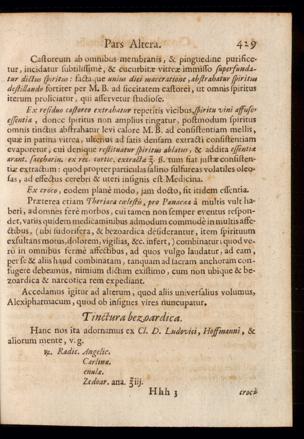 Pars Altera. 429
Castoreum ab omnibus membranis, & pinguedine purifice-
tur, incidatur subtilissimè, & cucurbitæ vitreæ immisso superfunda-
tur dictus spiritus: facta que unius diei maceratione, abstrahatur spiritus
destillando fortiter per M. B. ad siccitatem castorei, ut omnis spiritus
iterum proliciatur, qui asservetur studiose.
Ex residuo castoreo extrahatur repetitis vicibus, spiritu vini affuso
essentia, donec spiritus non amplius tingatur, postmodum spiritus
omnis tinctus abstrahatur levi calore M. B. ad consistentiam mellis,
quæ in patina vitrea, ulterius ad satis densam extracti consistentiam
evaporetur, cui denique restituatur spiritus ablatus, & addita essentiæ
arant. saccharin. ex rec. cortic. extractæ ℥. ß. tum fiat justæ consisten-
tiæ extractum: quod propter particulas salino sulfureas volatiles oleo-
sas, ad effectus cerebri & uteri insignis est Medicina.
Ex croco, eodem planè modo, jam docto, sit itidem essentia.
Præterea etiam Theriaca cœlestis, pro Panacea à multis vult ha-
beri, ad omnes ferè morbos, cui tamen non semper eventus respon-
det, variis quidem medicaminibus admodum commodè in multis affe-
ctibus, (ubi sudorifera, & bezoardica desiderantur, item spirituum
exsultans motus, dolorem, vigilias, &c. infert,) combinatur: quod ve-
rò in omnibus fermè affectibus, ad quos vulgo laudatur, ad eam,
per se & aliis haud combinatam, tanquam ad sacram anchoram con-
fugere debeamus, nimium dictum existimo, cum non ubique & be-
zoardica & narcotica rem expediant.
Accedamus igitur ad alterum, quod aliis universalius volumus,
Alexipharmacum, quod ob insignes vires nuncupatur,
Tinctura bezoardica.
Hanc nos ita adornamus ex Cl. D. Ludovici, Hoffmanni, &
aliorum mente, v. g.
℞. Radic. Angelic.
Carlinæ.
enulæ.
Zedoar. ana. ℥iij.
Hhh 3 croci